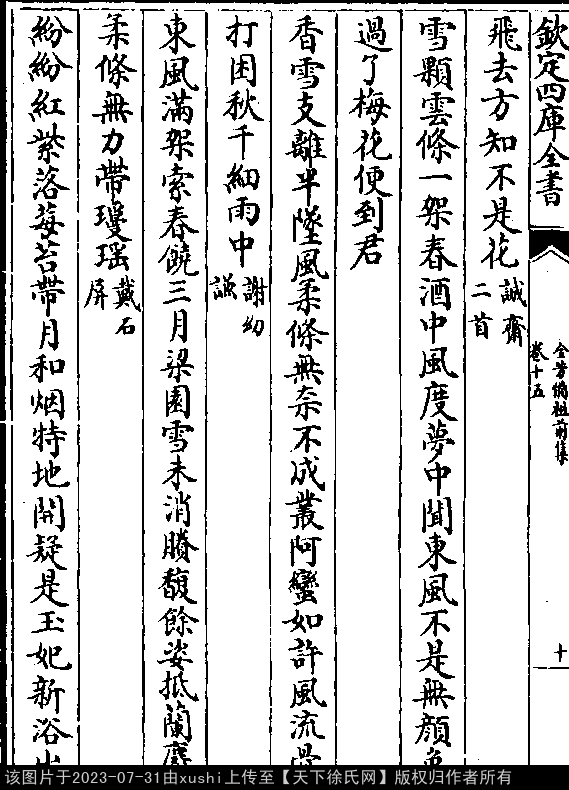 欽定四庫全書
全芳備祖前集
卷十五
十
飛去方知不是花
誠齋
二首
雪顆雲條一架春酒中風度夢中聞東風不是無顔
過了梅花便到君
香雪支離半墜風柔條無奈不成叢阿蠻如許風流
打困秋千細雨中
謝幼
謙
東風滿架索春饒三月梁園雪未消賸馥餘姿抵蘭
柔條無力帶瓊瑶
戴石
屏
紛紛紅紫落莓苔帶月和烟特地開疑是玉妃新浴
该图片于2023-07-31由xushi上传至【天下徐氏网】版权归作者所有